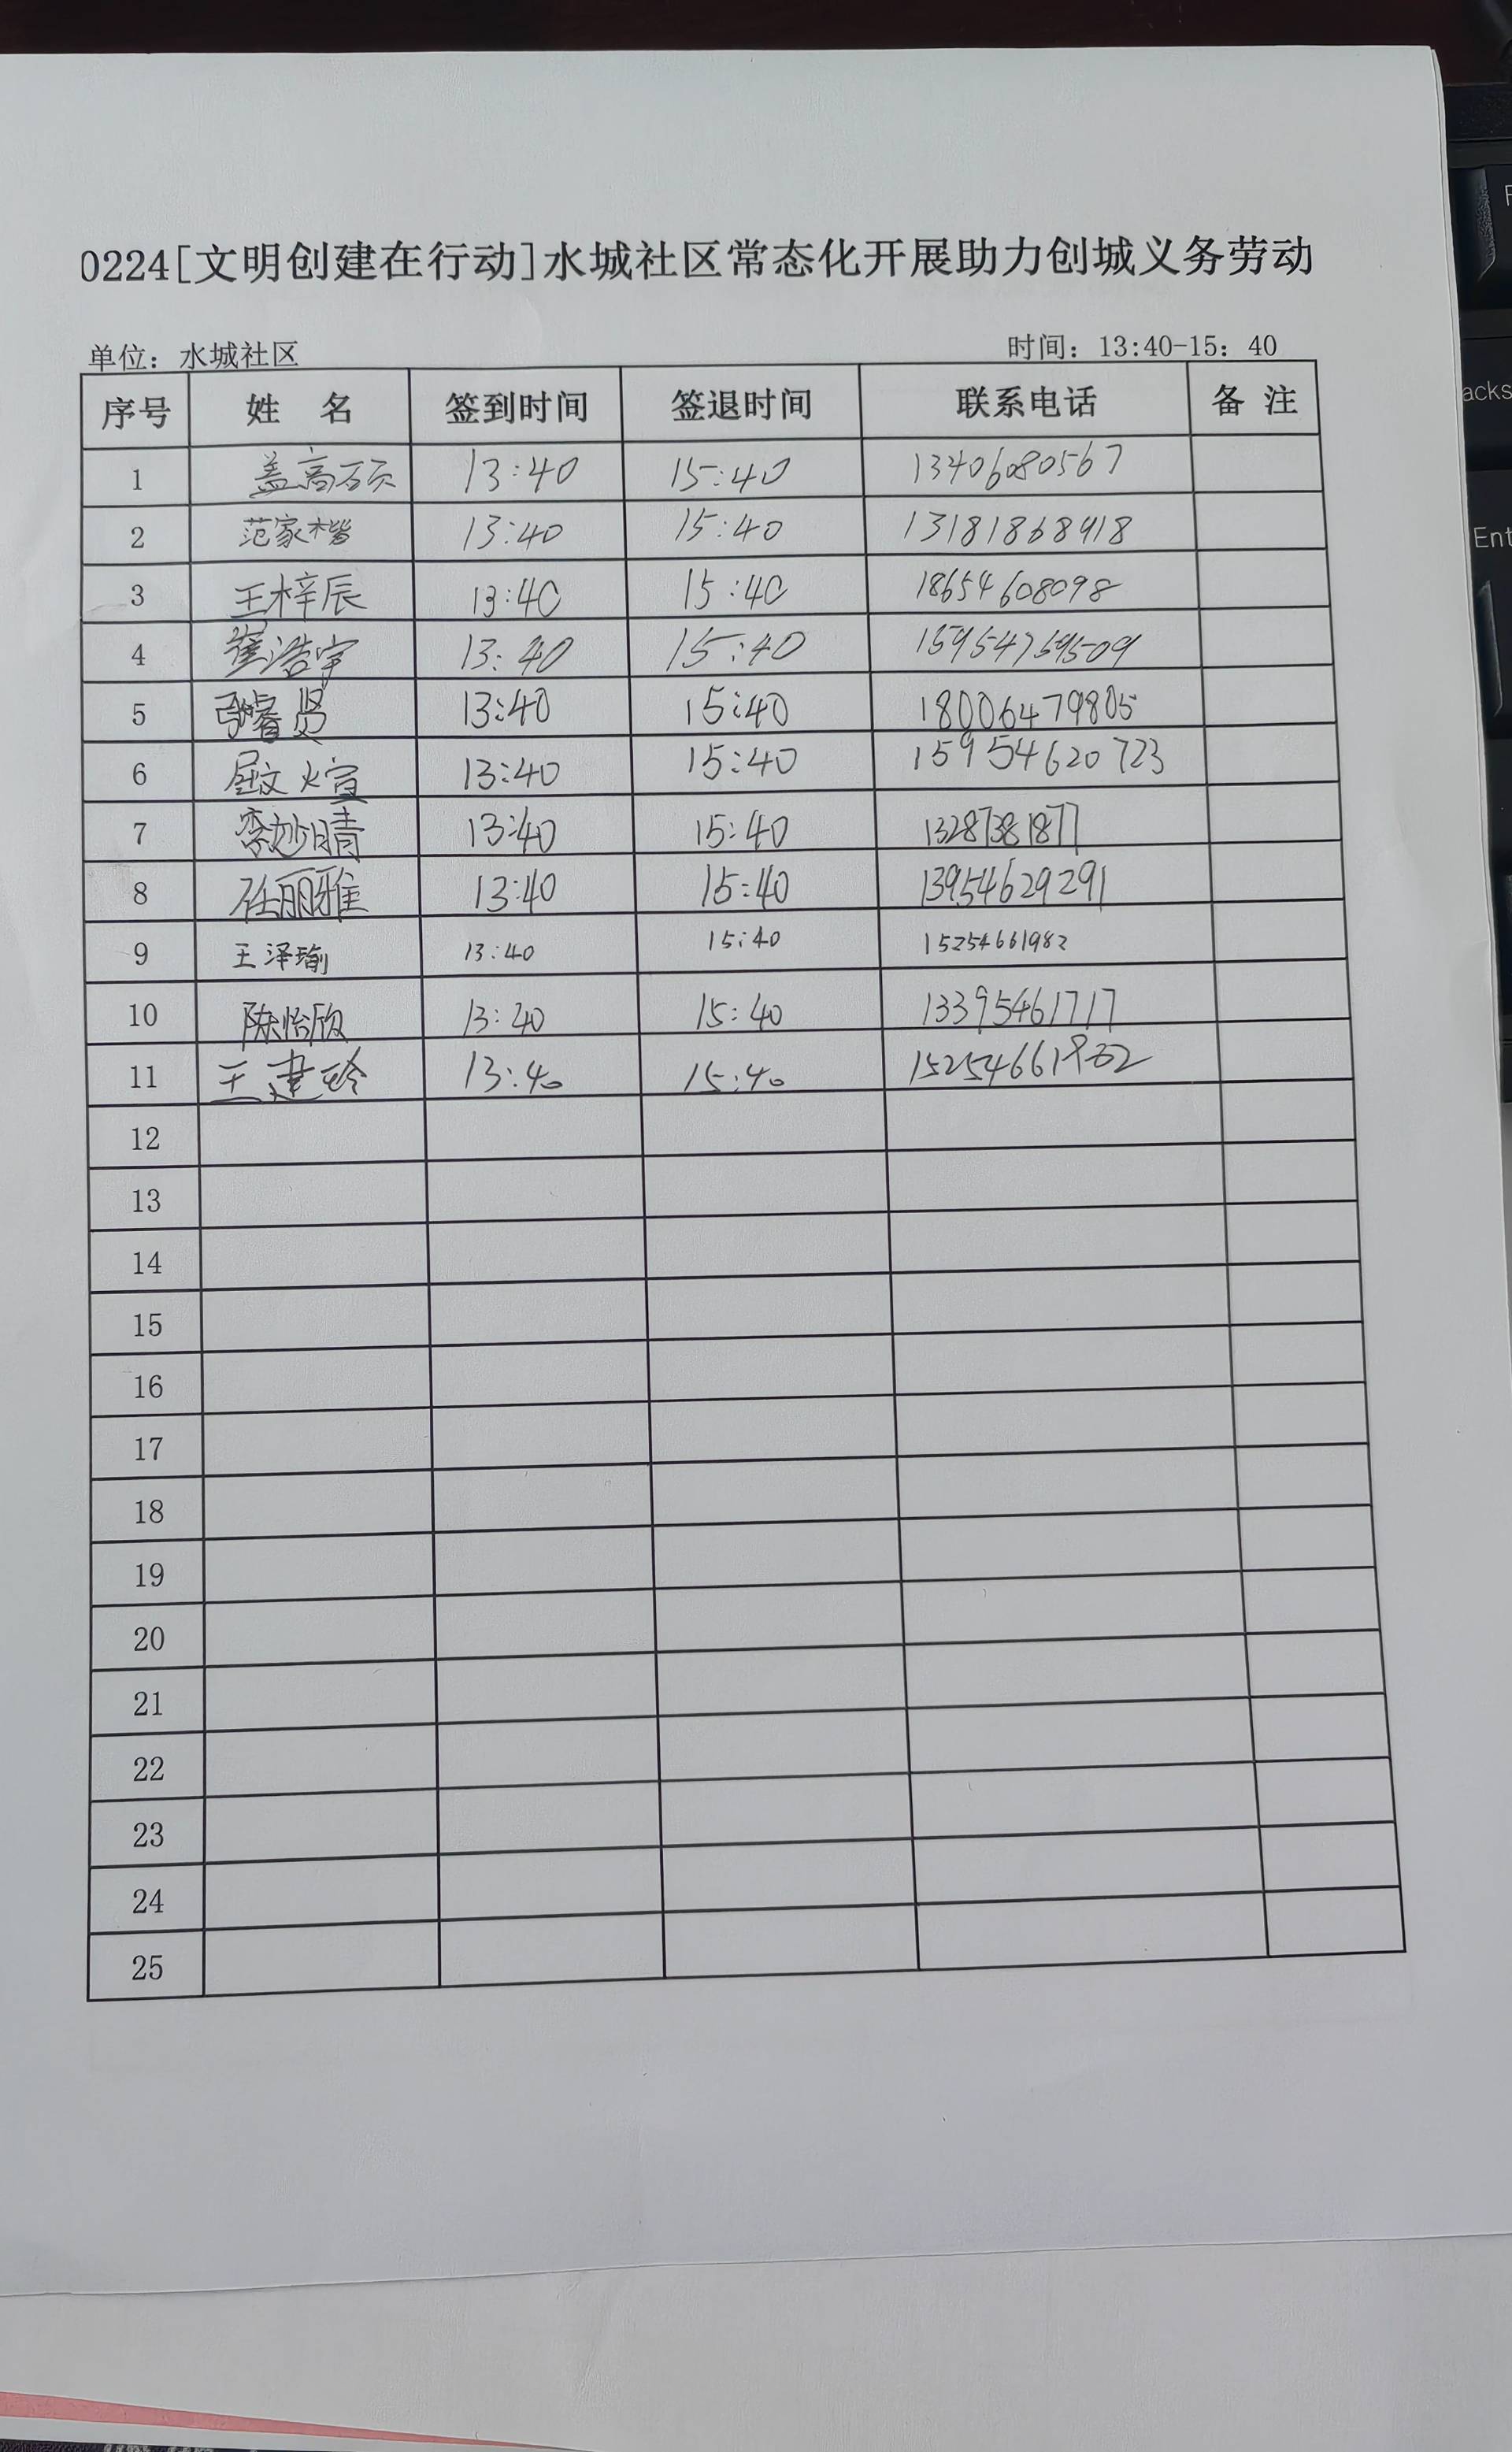 0224[文明创建在行动]水城社区常态化开展助力创城义务劳动
单位：水城社区 时间：13:40-15：40
序号 姓 名 签到时间 签退时间 联系电话 备 注
1 盖高硕 13:40 15:40 13406080567
2 范家楷 13:40 15:40 13181868918
3 王梓辰 13:40 15:40 18654608098
4 崔浩宇 13:40 15:40
5 睿贤 13:40 15:40 18006479805
6 屈文煊 13:40 15:40 15954620723
7 李妙晴 13:40 15:40 13287381877
8 任丽雅 13:40 15:40 13954629291
9 王泽瑜 13:40 15:40 15254661982
10 陈怡欣 13:40 15:40 13395461717
11 王建玲 13:40 15:40
12
13
14
15
16
17
18
19
20
21
22
23
24
25
acks
Ent